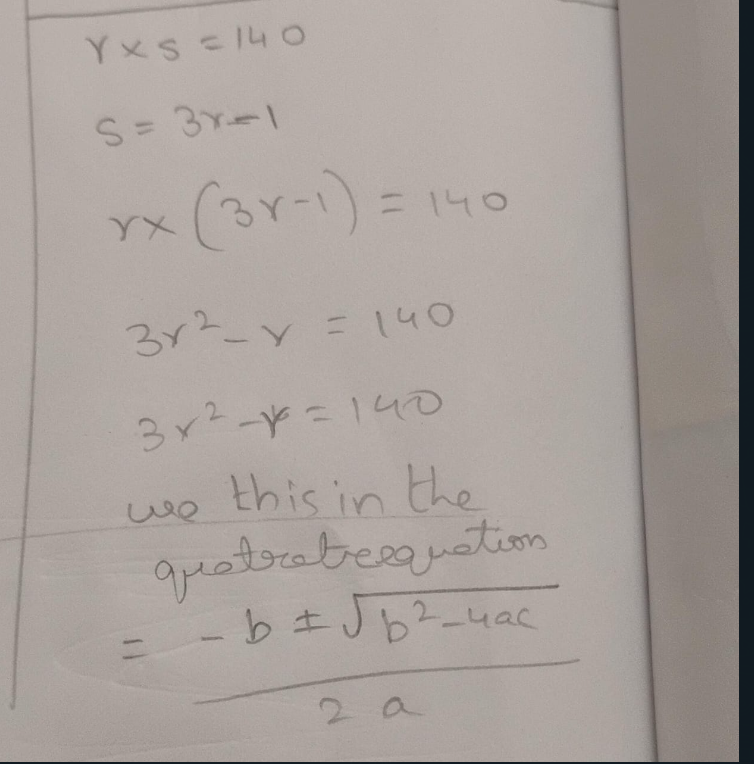 r x s = 140
s = 3r - 1
r x (3r - 1) = 140
3r² - r = 140
3r² - r = 140
use this in the
quatratreequation
= - b ± √b² - 4ac
2 a